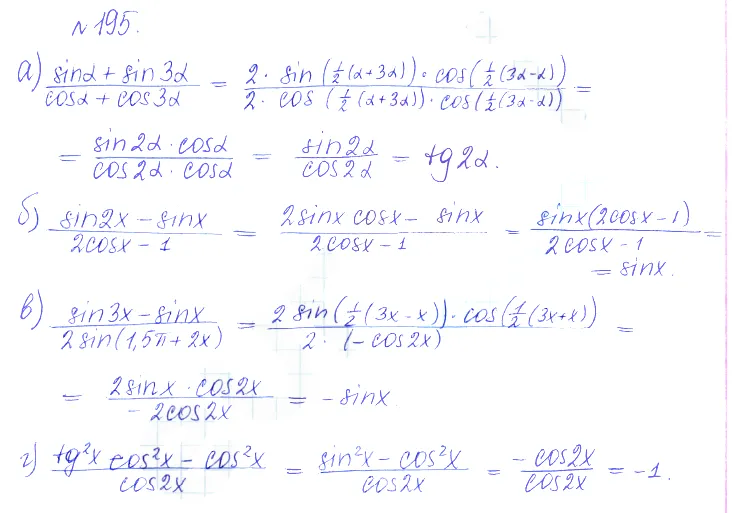 №195.
а) (sinα + sin3α)/(cosα + cos3α) = (2· sin(½(α+3α))·cos(½(3α-α)))/(2· cos(½(α+3α))·cos(½(3α-α))) =
= (sin2α·cosα)/(cos2α·cosα) = sin2α/cos2α = tg2α.
б) (sin2x – sinx)/(2cosx – 1) = (2sinx cosx – sinx)/(2cosx – 1) = (sinx(2cosx – 1))/(2cosx – 1) =
= sinx.
в) (sin3x – sinx)/(2sin(1,5π + 2x)) = (2sin(½(3x – x))·cos(½(3x+x)))/(2·(–cos2x)) =
= (2sinx·cos2x)/(–2cos2x) = –sinx
г) (tg²x cos²x – cos²x)/cos2x = (sin²x – cos²x)/cos2x = –cos2x/cos2x = –1.